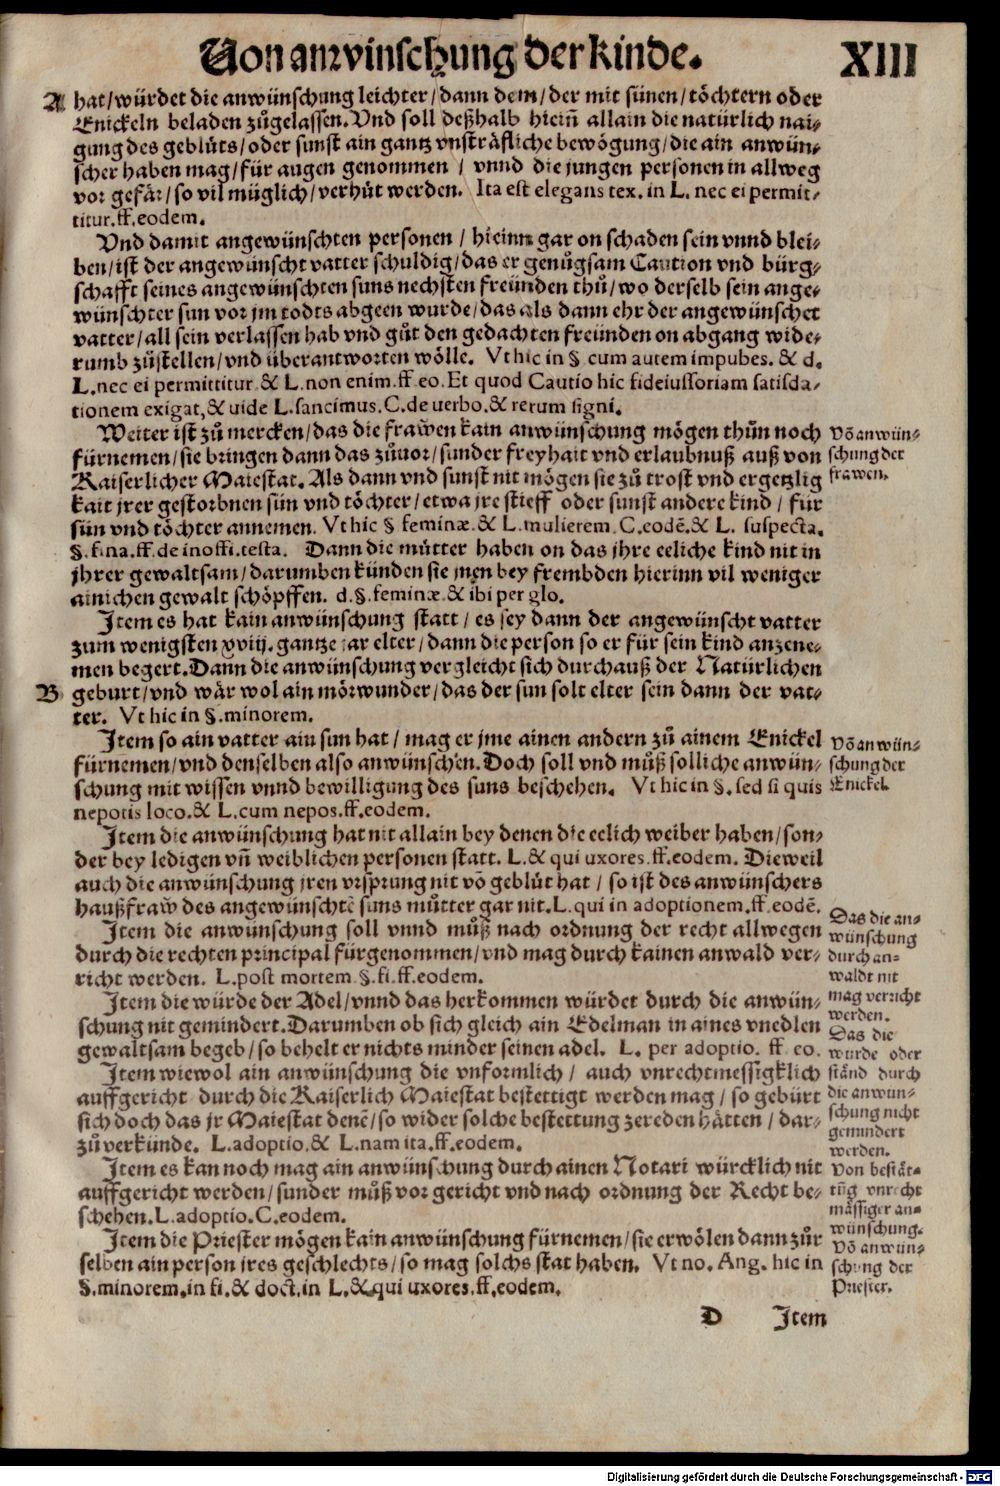 Von anwinschung der kinde. XIII
A hat/würdet die anwünschung leichter/dann dem/der mit sünen/töchtern oder
Enickeln beladen zůgelassen. Vnd soll deßhalb hieiñ allain die natürlich nai-
gung des geblůts/oder sunst ain gantz vnsträfliche bewögung/die ain anwün-
scher haben mag/für augen genommen / vnnd die jungen personen in allweg
vor gefär/so vil müglich/verhůt werden. Ita est elegans tex. in L. nec ei permit-
titur.ff.eodem.
Vnd damit angewünschten personen / hieinn gar on schaden sein vnnd blei-
ben/ist der angewünscht vatter schuldig/das er genůgsam Caution vnd bürg-
schafft seines angewünschten suns nechsten freünden thů/wo derselb sein ange-
wünschter sun vor jm todts abgeen wurde/das als dann ehr der angewünschet
vatter/all sein verlassen hab vnd gůt den gedachten freünden on abgang wide-
rumb zůstellen/vnd überantworten wölle. Vt hic in §. cum autem impubes. & d.
L.nec ei permittitur.& L.non enim.ff.eo.Et quod Cautio hic fideiussoriam satisda-
tionem exigat,& uide L.sancimus.C.de uerbo.& rerum signi.
Weiter ist zů mercken/das die frawen kain anwünschung mögen thůn noch
fürnemen/sie bringen dann das zůuor/sunder freyhait vnd erlaubnuß auß von
Kaiserlicher Maiestat. Als dann vnd sunst nit mögen sie zů trost vnd ergetzlig
kait jrer gestorbnen sün vnd töchter/etwa jre stieff oder sunst andere kind / für
sün vnd töchter annemen. Vt hic § feminæ.& L.mulierem.C.eodẽ.& L. suspecta.
§.fina.ff.de inoffi.testa. Dann die můtter haben on das jhre eeliche kind nit in
jhrer gewaltsam/darumben künden sie jnen bey frembden hierinn vil weniger
ainichen gewalt schöpffen. d.§.feminæ.& ibi per glo.
Item es hat kain anwünschung statt / es sey dann der angewünscht vatter
zum wenigsten xviij. gantze jar elter/dann die person so er für sein kind anzene-
men begert. Dann die anwünschung vergleicht sich durchauß der Natürlichen
B geburt/vnd wär wol ain mörwunder/das der sun solt elter sein dann der vat-
ter. Vt hic in §.minorem.
Item so ain vatter ain sun hat / mag er jme ainen andern zů ainem Enickel
fürnemen/vnd denselben also anwünschen. Doch soll vnd můß solliche anwün-
schung mit wissen vnnd bewilligung des suns beschehen. Vt hic in §. sed si quis
nepotis loco.& L.cum nepos.ff.eodem.
Item die anwünschung hat nit allain bey denen die eelich weiber haben/son-
der bey ledigen vñ weiblichen personen statt. L.& qui uxores.ff.eodem. Dieweil
auch die anwünschung jren vrsprung nit võ geblůt hat / so ist des anwünschers
haußfraw des angewünschtẽ suns můtter gar nit. L.qui in adoptionem.ff.eodẽ.
Item die anwünschung soll vnnd můß nach ordnung der recht allwegen
durch die rechten principal fürgenommen/vnd mag durch kainen anwald ver-
richt werden. L.post mortem §.fi.ff.eodem.
Item die würde der Adel/vnnd das herkommen würdet durch die anwün-
schung nit gemindert. Darumben ob sich gleich ain Edelman in aines vnedlen
gewaltsam begeb/so behelt er nichts minder seinen adel. L. per adoptio. ff. eo.
Item wiewol ain anwünschung die vnformlich / auch vnrechtmessigklich
auffgericht durch die Kaiserlich Maiestat bestettigt werden mag / so gebürt
sich doch das jr Maiestat denẽ/so wider solche bestettung zereden hätten / dar-
zů verkünde. L.adoptio.& L.nam ita.ff.eodem.
Item es kan noch mag ain anwünschung durch ainen Notari würcklich nit
auffgericht werden/sunder můß vor gericht vnd nach ordnung der Recht be-
schehen. L.adoptio.C.eodem.
Item die Priester mögen kain anwünschung fürnemen/sie erwölen dann zůr
selben ain person jres geschlechts/so mag solchs stat haben. Vt no. Ang. hic in
§.minorem.in fi.& doct.in L.& qui uxores.ff.eodem.
D Item
Võ anwün-
schung der
frawen.
Võ anwün-
schung der
Enickel.
Das die an-
wünschung
durch an-
waldt nit
mag verricht
werden.
Das die
wurde oder
ständ durch
die anwun-
schung nicht
gemindert
werden.
Von bestät-
tũg vnrecht
mässiger an-
wünschung.
Võ anwün-
schung der
Priester.
Digitalisierung gefördert durch die Deutsche Forschungsgemeinschaft - DFG